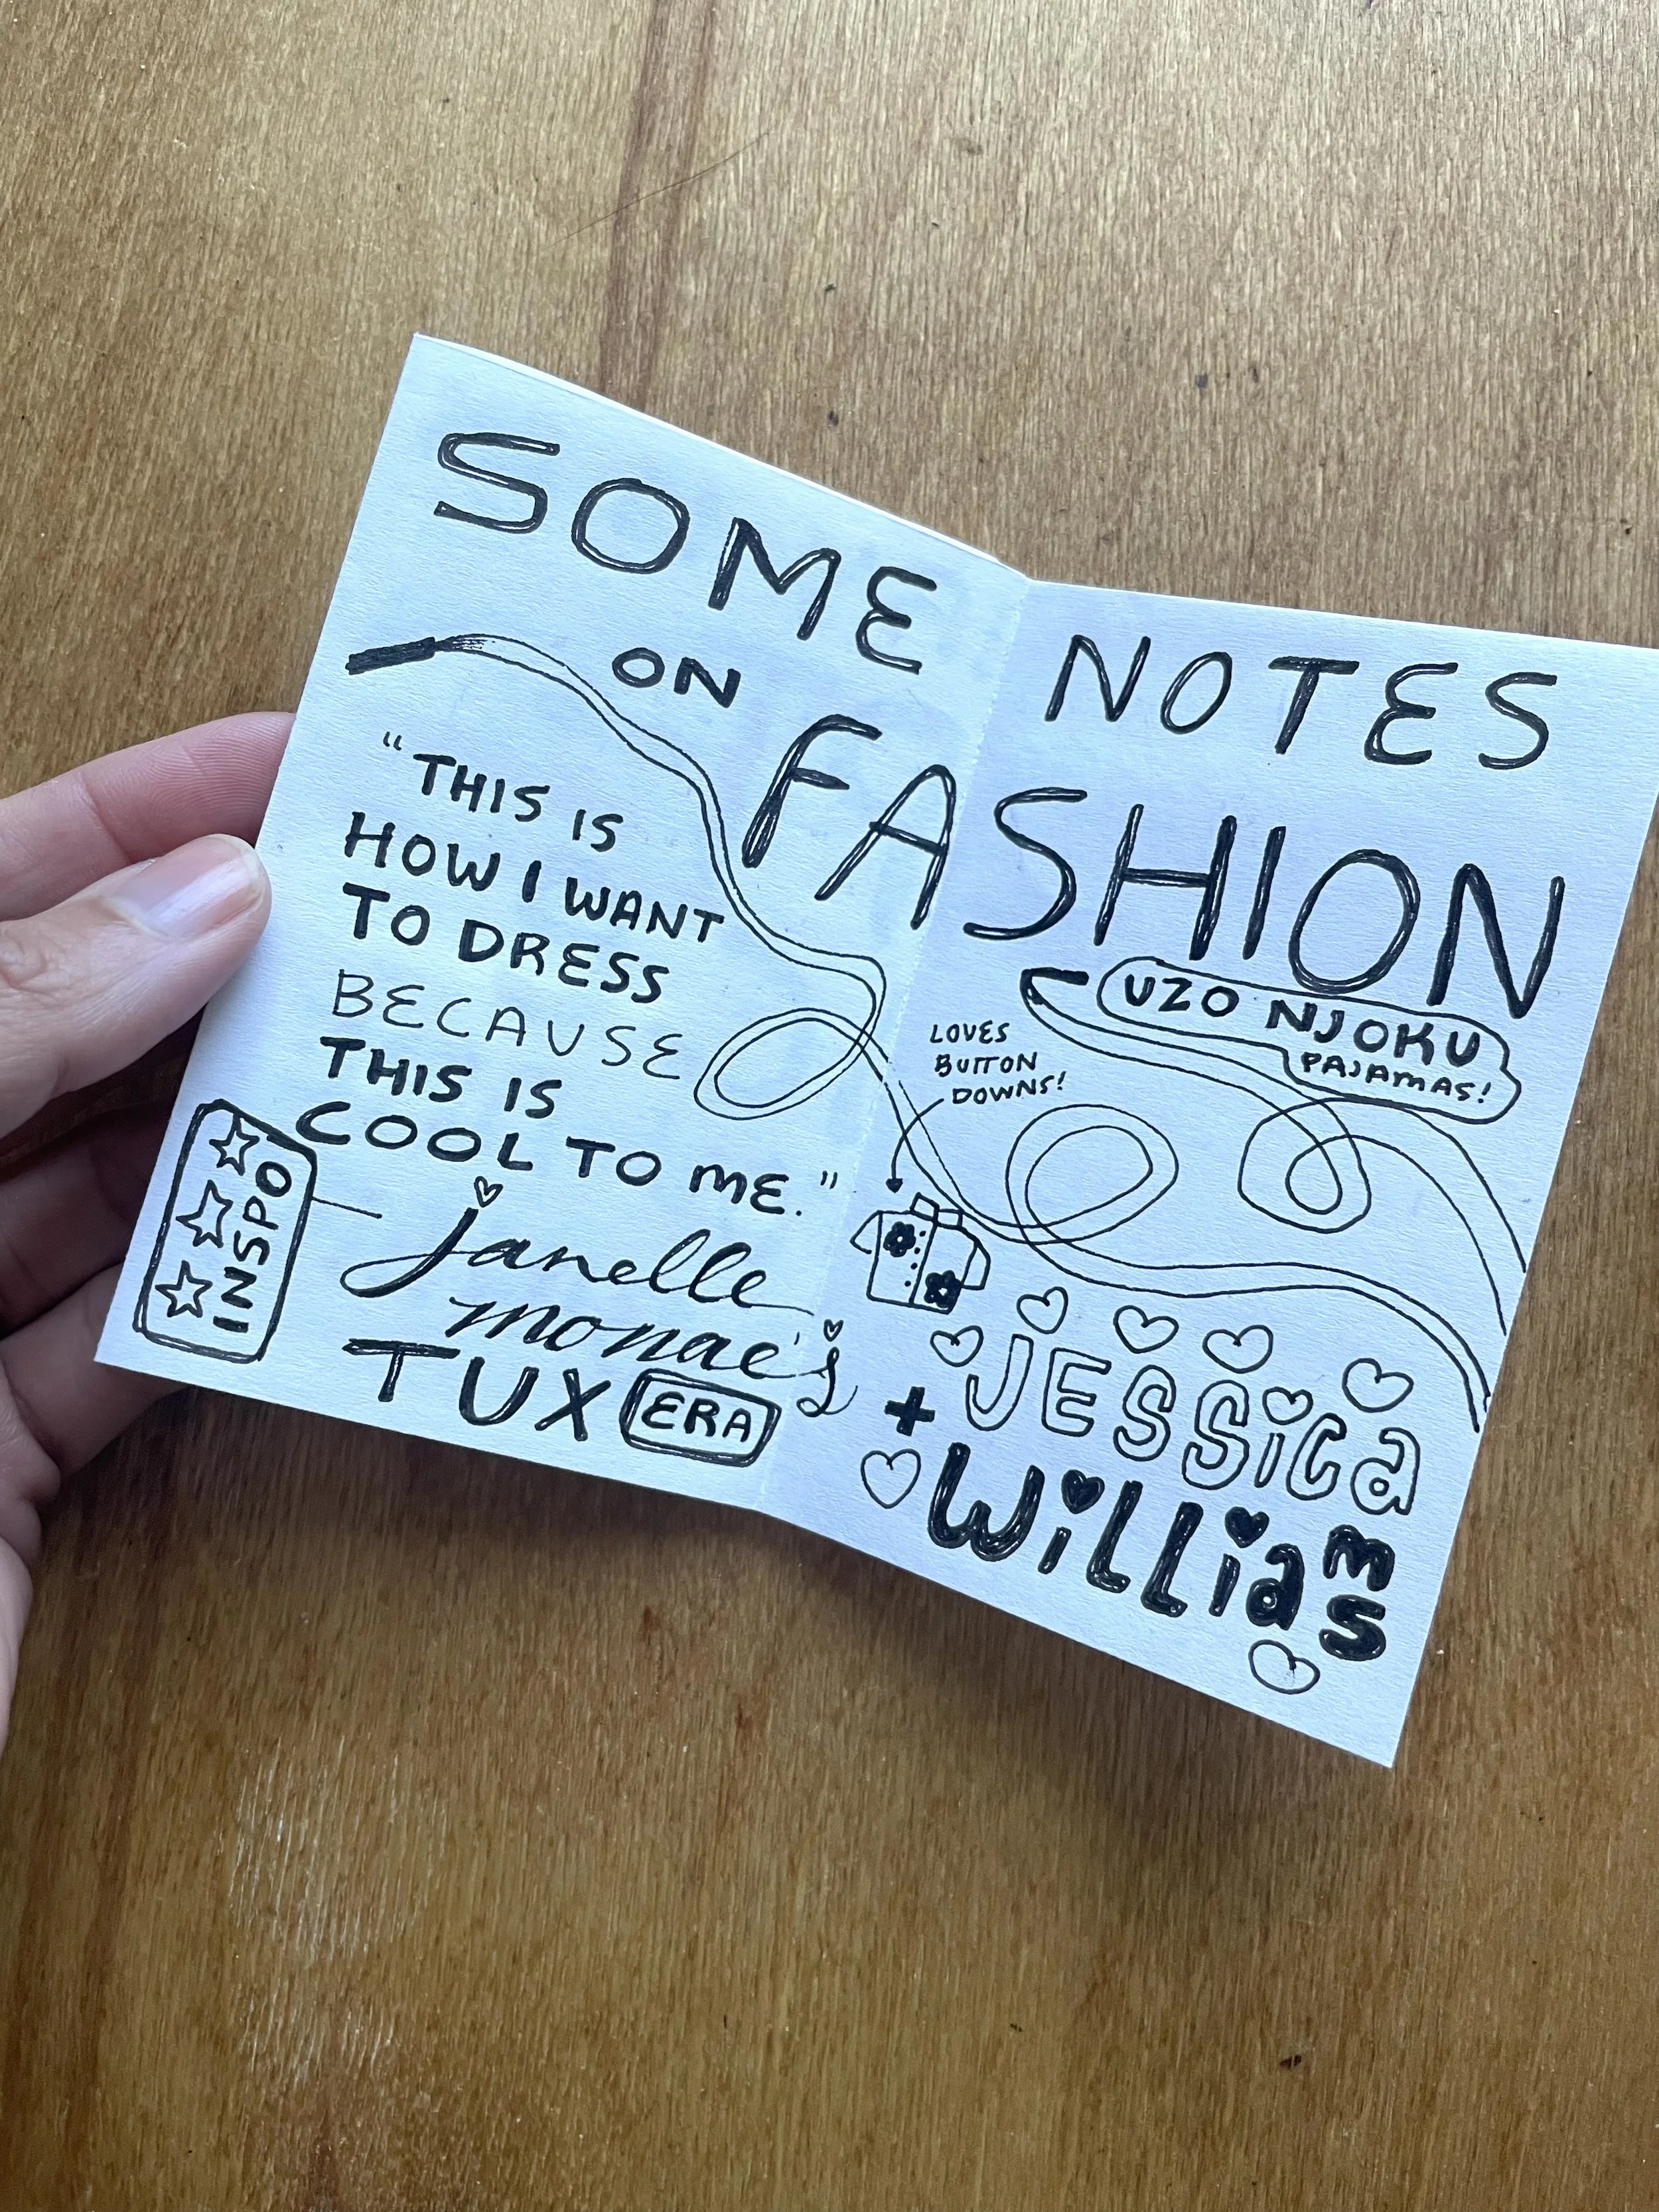 SOME NOTES
ON
FASHION
"THIS IS
HOW I WANT
TO DRESS
BECAUSE
THIS IS
COOL TO ME."
INSPO
janelle
monae's
TUX ERA
UZO NJOKU
PAJAMAS!
LOVES
BUTTON
DOWNS!
+ JESSiCa
WiLLiams